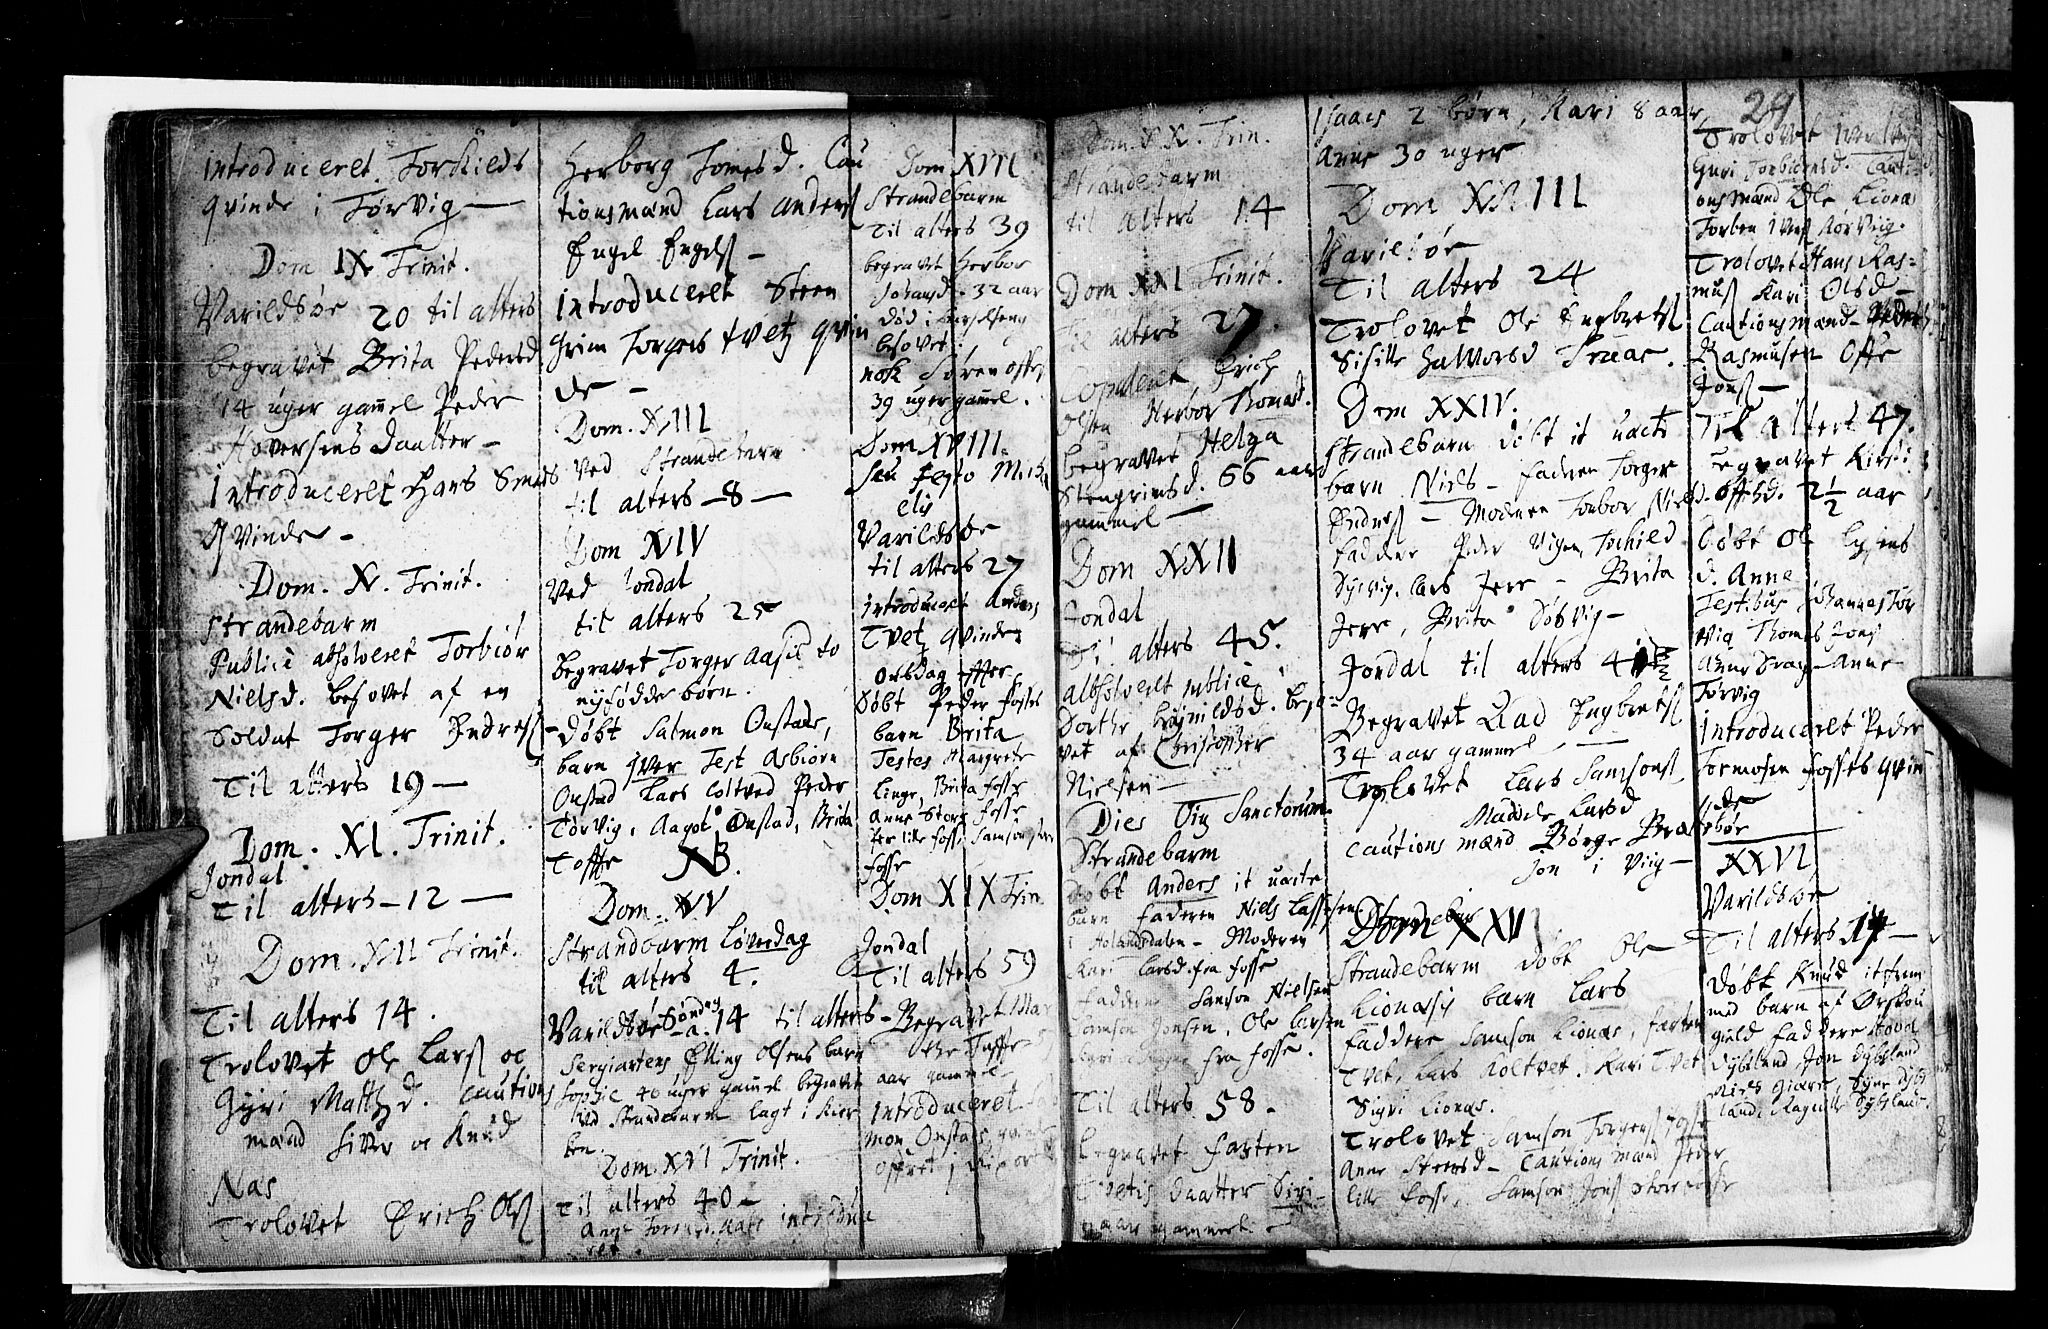 introduceret Torkields
qvinde i Tørvig —
Dom IX Trinit.
Varildsøe 20 til alters
begravet Brita Pedersd
14 uger gammel Peder
Hoversens daatter —
Introduceret Hans Smeds
qvinde —
Dom. X. Trinit.
Strandebarm
Publicè absolveret Torbiør
Nielsd. besovet af en
Soldat Torger Endres
Til alters 19 —
Dom. XI. Trinit.
Jondal
Til alters — 12 —
Dom. XII Trinit.
Til alters 14.
Trolovet Ole Lars oc
Gyri Matth d. Cautions
mænd Siver oc Knud
Nas
Trolovet Erich Ols
Herborg Tomesd. Cau
tionsmænd Lars Anders
Engel Engels —
Introduceret Steen
Grim Torgers tvet qvin
de —
Dom. XIII
Ved Strandebarm
til alters — 8 —
Dom XIV
Ved Jondal
til alters 25
Begravet Torger Aasil to
nyfødde børn.
Døbt Salmon Onstads
barn Iver Test Asbiørn
Onstad Lars Coltved Peder
Tørvig, Aagot Onstad, Brita
Toffte NB.
Dom. XV
Strandbarm Løverdag
til alters 4.
Søndag
Varildsøe 14 til alters
Sergiantens Elling Olsens barn
Sophie 40 uger gammel begravet
ved Strandebarm lagt i Kir
ken.
Dom. XVI Trinit.
Til alters 40 —
Dom XVII
Strandebarm
Til alters 39
begravet Herbor
Johansd. 32 aar
død i barselseng
besovet.
nok Søren
39 uger gammel.
Dom XVIII.
Seu Festo Micha
elis
Varildsøe
til alters 27
introduceret Anders
Tvet qvinde
Onsdag effter
Døbt Peder Fosses
barn Brita
Testes Margrete
Linge, Brita Fosse
Anne Store Fosse
lille Fosse Samson
Fosse
Dom XIX Trin.
Jondal
Til alters 59
Begravet Mar
the Tuffte
aar gammel
introduceret
mon Onstads qvinde
offret j
Dom. XX. Trin.
Strandebarm
til alters 14
Dom XXI Trinit.
Til alters 27.
Copuleret Erich
Olsen Herbor Thomasd.
begravet Helga
Stengrimsd. 66 aar
gammel —
Dom XXII
Jondal
Til alters 45.
absolveret publicè
Dorthe beso=
vet af Christopher
Nielsen —
Dies Oīm Sanctorum
Strandebarm
Døbt Anders it uæcte
barn Faderen Niels Lassesen
i Holandsdalen — Moderen
Kari Larsd. fra Fosse
Faddere Samson Nielsen
Samson Jonsen, Ole Larsen
Kari fra Fosse.
Til alters 58.
begravet Farten
Tvetis daatter Siri
aar gammel
29
Isaacs 2 børn, Kari 8 aar,
Arne 30 uger
Dom XXIII
Varildsøe
Til alters 24
Trolovet Ole Engbrets
Sisille Halvorsd Traae.
Dom XXIV.
Strandebarm døbt it uæcte
barn Niels — Fadren Torger
Endres — Moderen Torbor Nielsd.
Faddere Peder Vigen, Torkild
Sylvig, Lars Jere — Brita
Jere, Brita Søbvig —
Jondal til alters
Begravet Aad Engbrets
34 aar gammel —
Trolovet Lars Samsons
Madele Larsd
Cautions mænd Børge Bratebøe
Jon i Viig —
Dom XXV
Strandebarm døbt Ole
Lionæsis barn Lars
Faddere Samson Lionæs, Farten
Tvet, Lars Koltvet, Kari Tvet
Sigri Lionæs.
Trolovet Samson Torgers
Anne Steensd — Cautions mænd Peder
lille Fosse, Samson Jons store Fosse
Trolovet Iver
Guri Torbiørnsd. Cauti=
onsmænd Ole Lionæs
Torben Ivers Rørviig.
Trolovet Hans Ras=
mus Kari Olsd —
Cautionsmænd
Rasmusen Offe
Jons —
Til alters 47.
begravet Kirsti
Offesd. 2½ aar
Døbt Ole
d. Anne
Testibus Johannes Tør
vig Thomas Jons
Anne Drag Anne
Tørvig
Introduceret Peder
Tormosen Fosses qvin
de
XXVI
Varildsøe
Til alters 14 —
Døbt Knud it frem
med barn af Ørskou
gield Faddere
Dybsland Jon Dybsland
Niels Giære, Syne Dybs
land, Ragnille Dybsland.